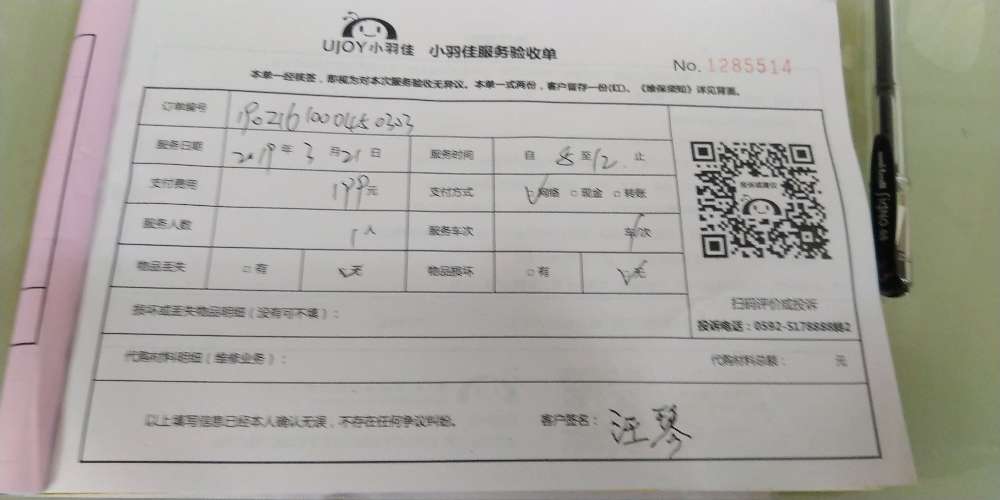 UJOY小羽佳 小羽佳服务验收单
No. 1285514
本单一经核签，即视为对本次服务验收无异议。本单一式两份，客户留存一份(红)。《维保须知》详见背面。
订单编号 190216100450303
服务日期 2019年3月21日 服务时间 自 8 至 12 止
支付费用 199元 支付方式 ☑网络 □现金 □转账
服务人数 1人 服务车次 车/次
物品丢失 □有 ☑无 物品损坏 □有 ☑无
投诉或建议
扫码评价或投诉
损坏或丢失物品明细（没有可不填）：
投诉电话：0592-5178888转2
代购材料明细（维修业务）： 代购材料总额： 元
以上填写信息已经本人确认无误，不存在任何争议纠纷。 客户签名：汪琴